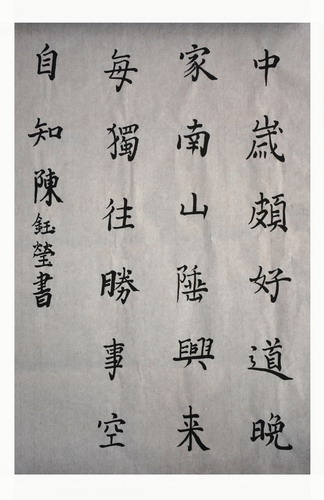 中歲頗好道晚
家南山陲興来
每獨往勝事空
自知陳鈺瑩書